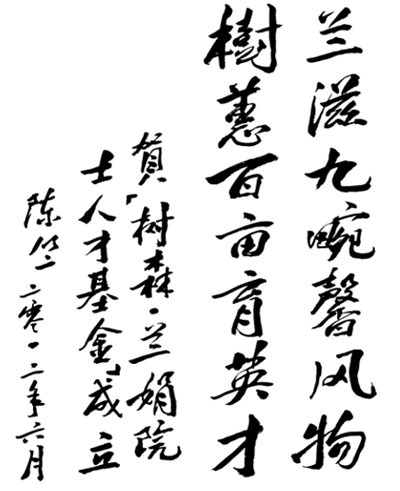 兰滋九畹馨风物
樹蕙百亩育英才
贺「树森·兰娟院
士人才基金」成立
陈竺 二零一二年六月